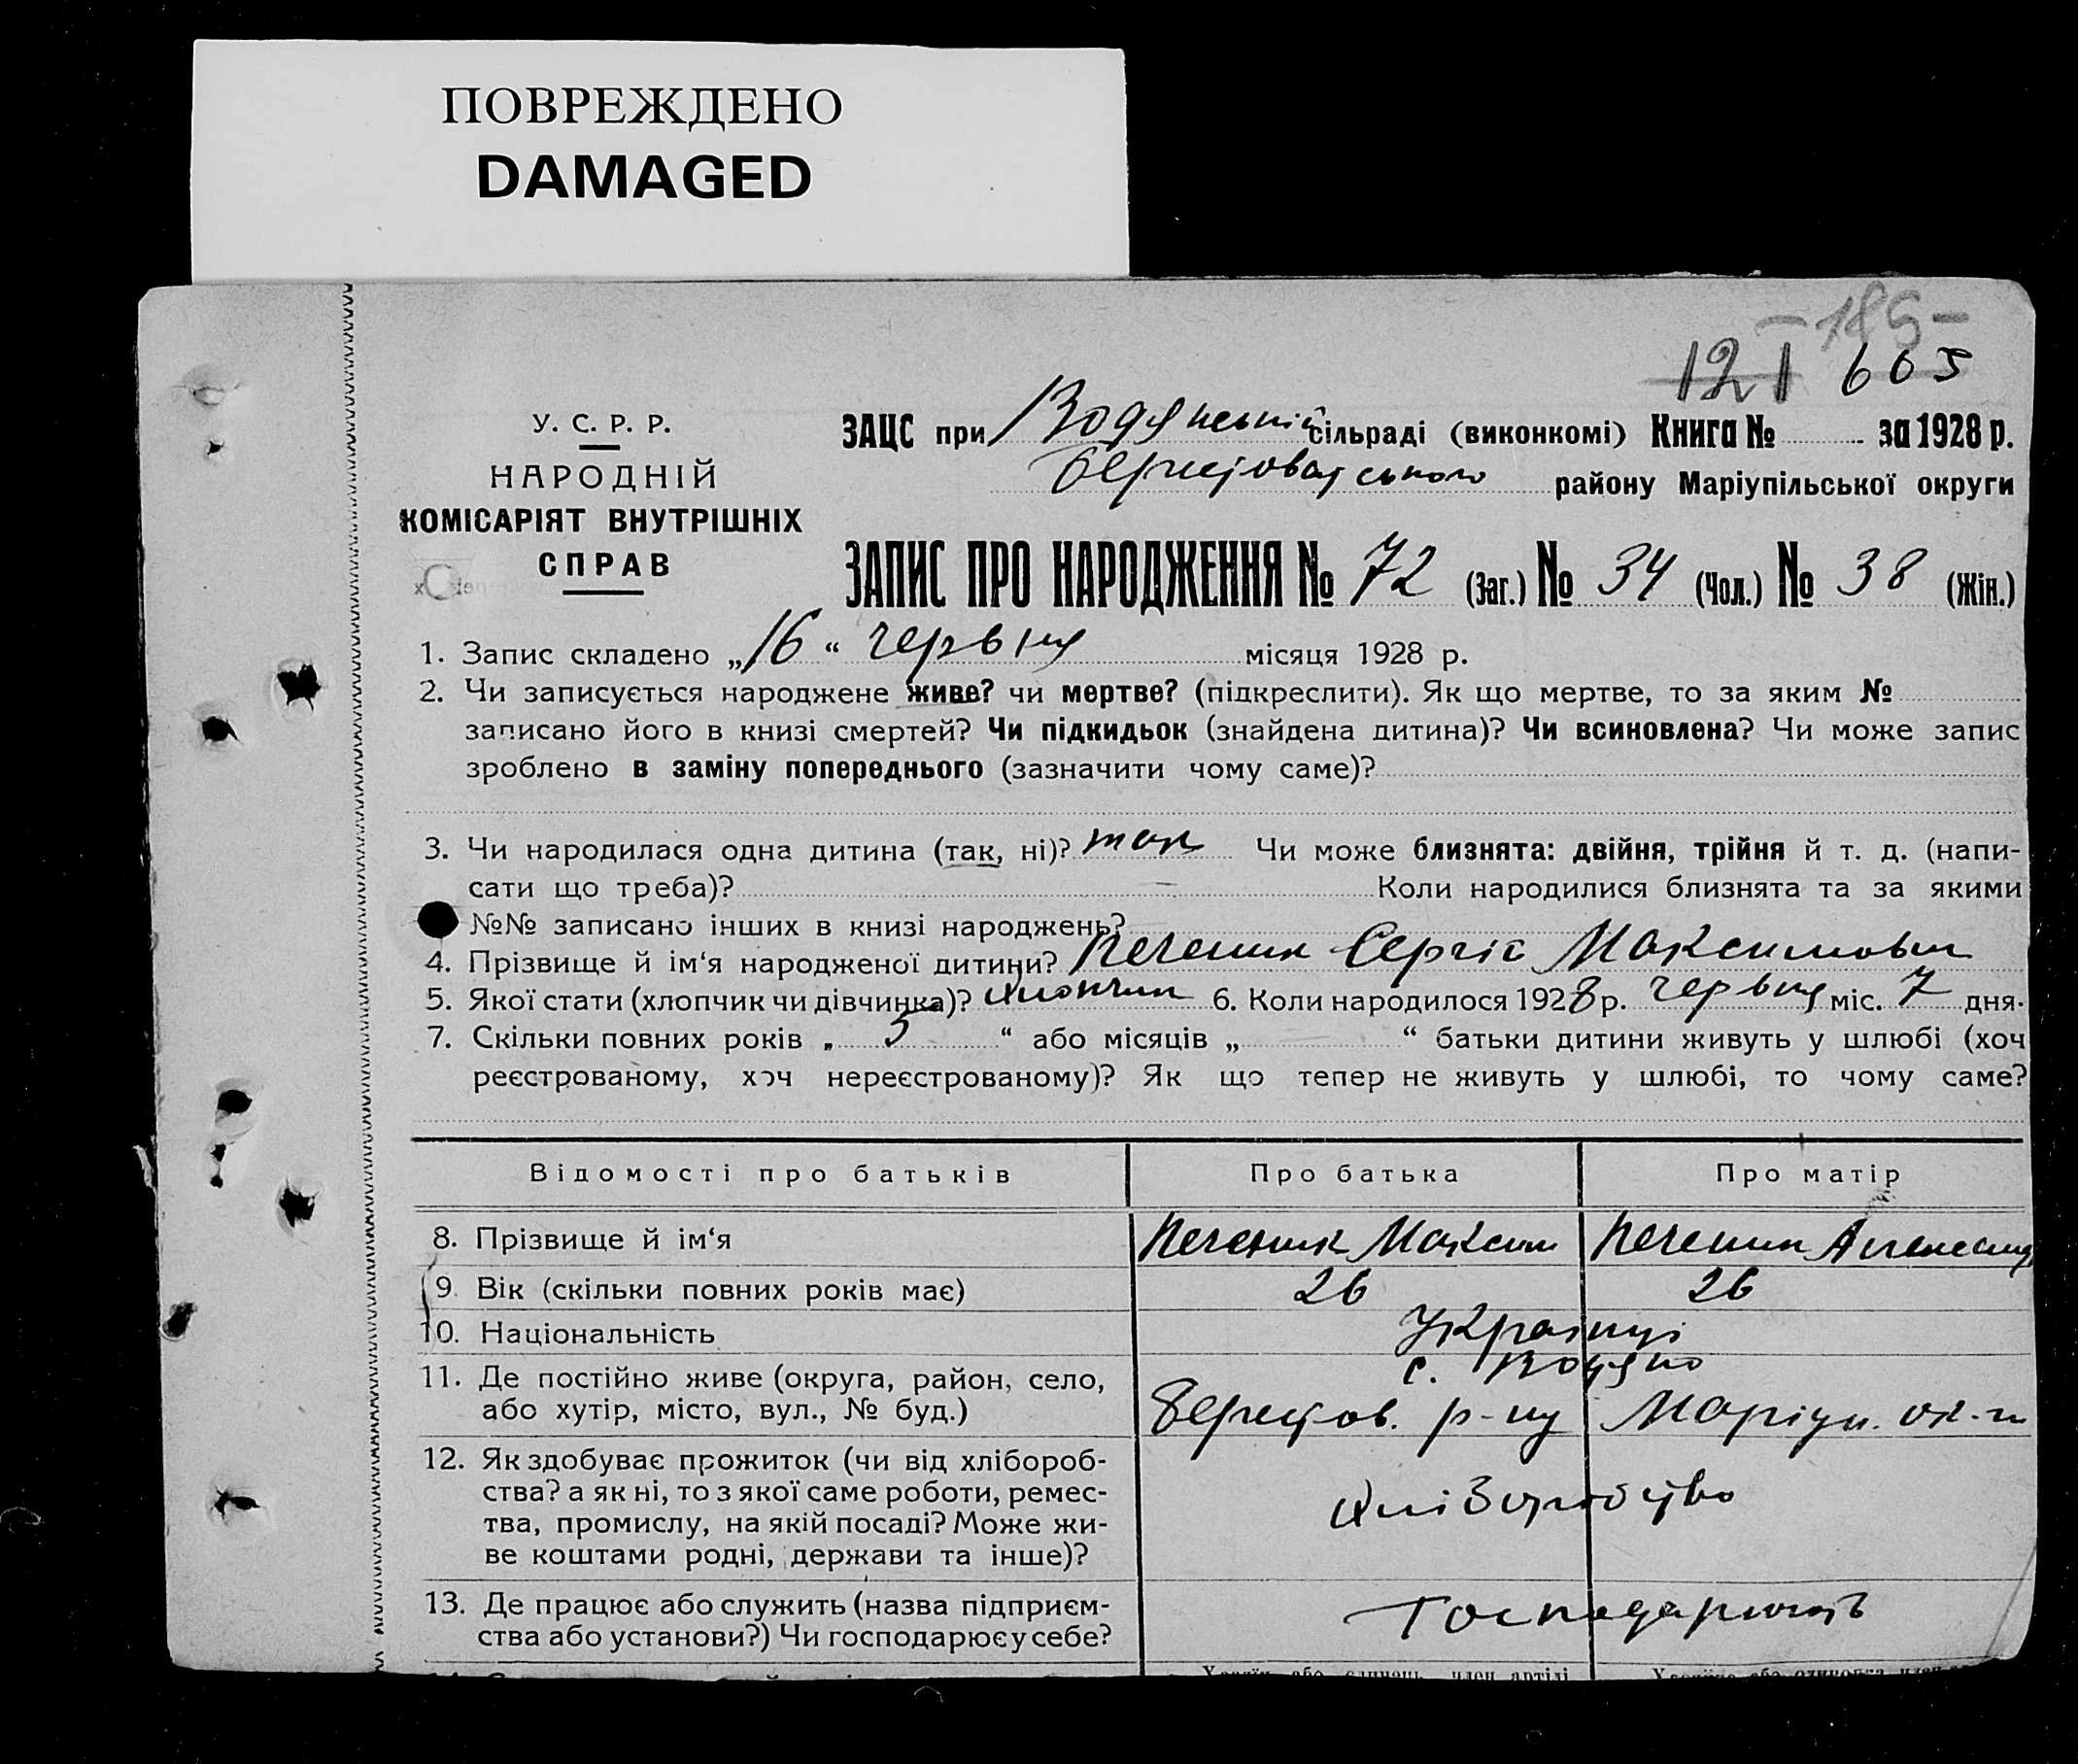 ПОВРЕЖДЕНО
DAMAGED
-185-
121 603
У. С. Р. Р.
НАРОДНІЙ
КОМІСАРІЯТ ВНУТРІШНІХ
СПРАВ
ЗАЦС при Водянській сільраді (виконкомі) Книга № за 1928 р.
Берестоватського району Маріупільської округи
ЗАПИС ПРО НАРОДЖЕННЯ № 72 (Заг.) № 34 (Чол.) № 38 (Жін.)
1. Запис складено „16“ червня місяця 1928 р.
2. Чи записується народжене живе? чи мертве? (підкреслити). Як що мертве, то за яким №
записано його в книзі смертей? Чи підкидьок (знайдена дитина)? Чи всиновлена? Чи може запис
зроблено в заміну попереднього (зазначити чому саме)?
3. Чи народилася одна дитина (так, ні)? так Чи може близнята: двійня, трійня й т. д. (напи-
сати що треба)? Коли народилися близнята та за якими
№№ записано інших в книзі народжень?
4. Прізвище й ім‘я народженої дитини? Печеник Сергій Максимович
5. Якої стати (хлопчик чи дівчинка)? Хлопчик 6. Коли народилося 1928 р. червня міс. 7 дня.
7. Скільки повних років „ 5 “ або місяців „ “ батьки дитини живуть у шлюбі (хоч
реєстрованому, хоч нереєстрованому)? Як що тепер не живуть у шлюбі, то чому саме?
Відомості про батьків Про батька Про матір
8. Прізвище й ім‘я Печеник Максим Печеник
9. Вік (скільки повних років має) 26 26
10. Національність Українці
11. Де постійно живе (округа, район, село, с. Водяно
або хутір, місто, вул., № буд.) Берестов. р-ну Маріуп. ок-ги
12. Як здобуває прожиток (чи від хлібороб-
ства? а як ні, то з якої саме роботи, ремес- Хліборобство
тва, промислу, на якій посаді? Може жи-
ве коштами родні, держави та інше)?
13. Де працює або служить (назва підприєм- Господарюють
ства або установи?) Чи господарює у себе?